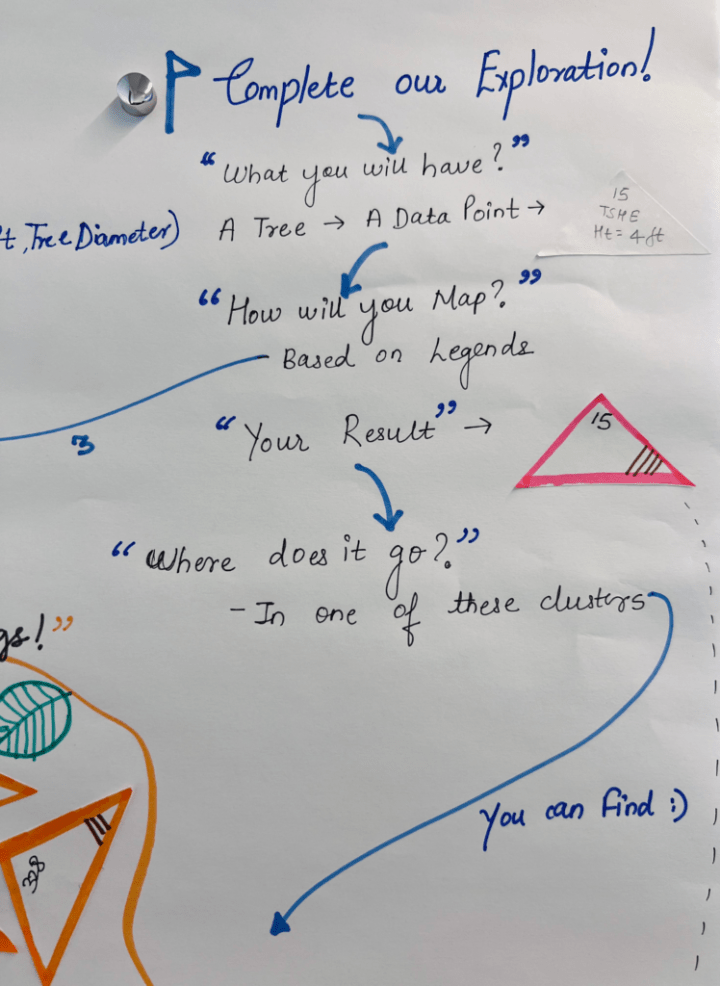 Complete our Exploration!
"What you will have?"
A Tree → A Data Point →
15
TSHE
Ht = 4ft
Tree Diameter)
"How will you Map?"
Based on Legends
3
"Your Result" →
15
"Where does it go?"
- In one of these clusters
gs!"
You can find :)